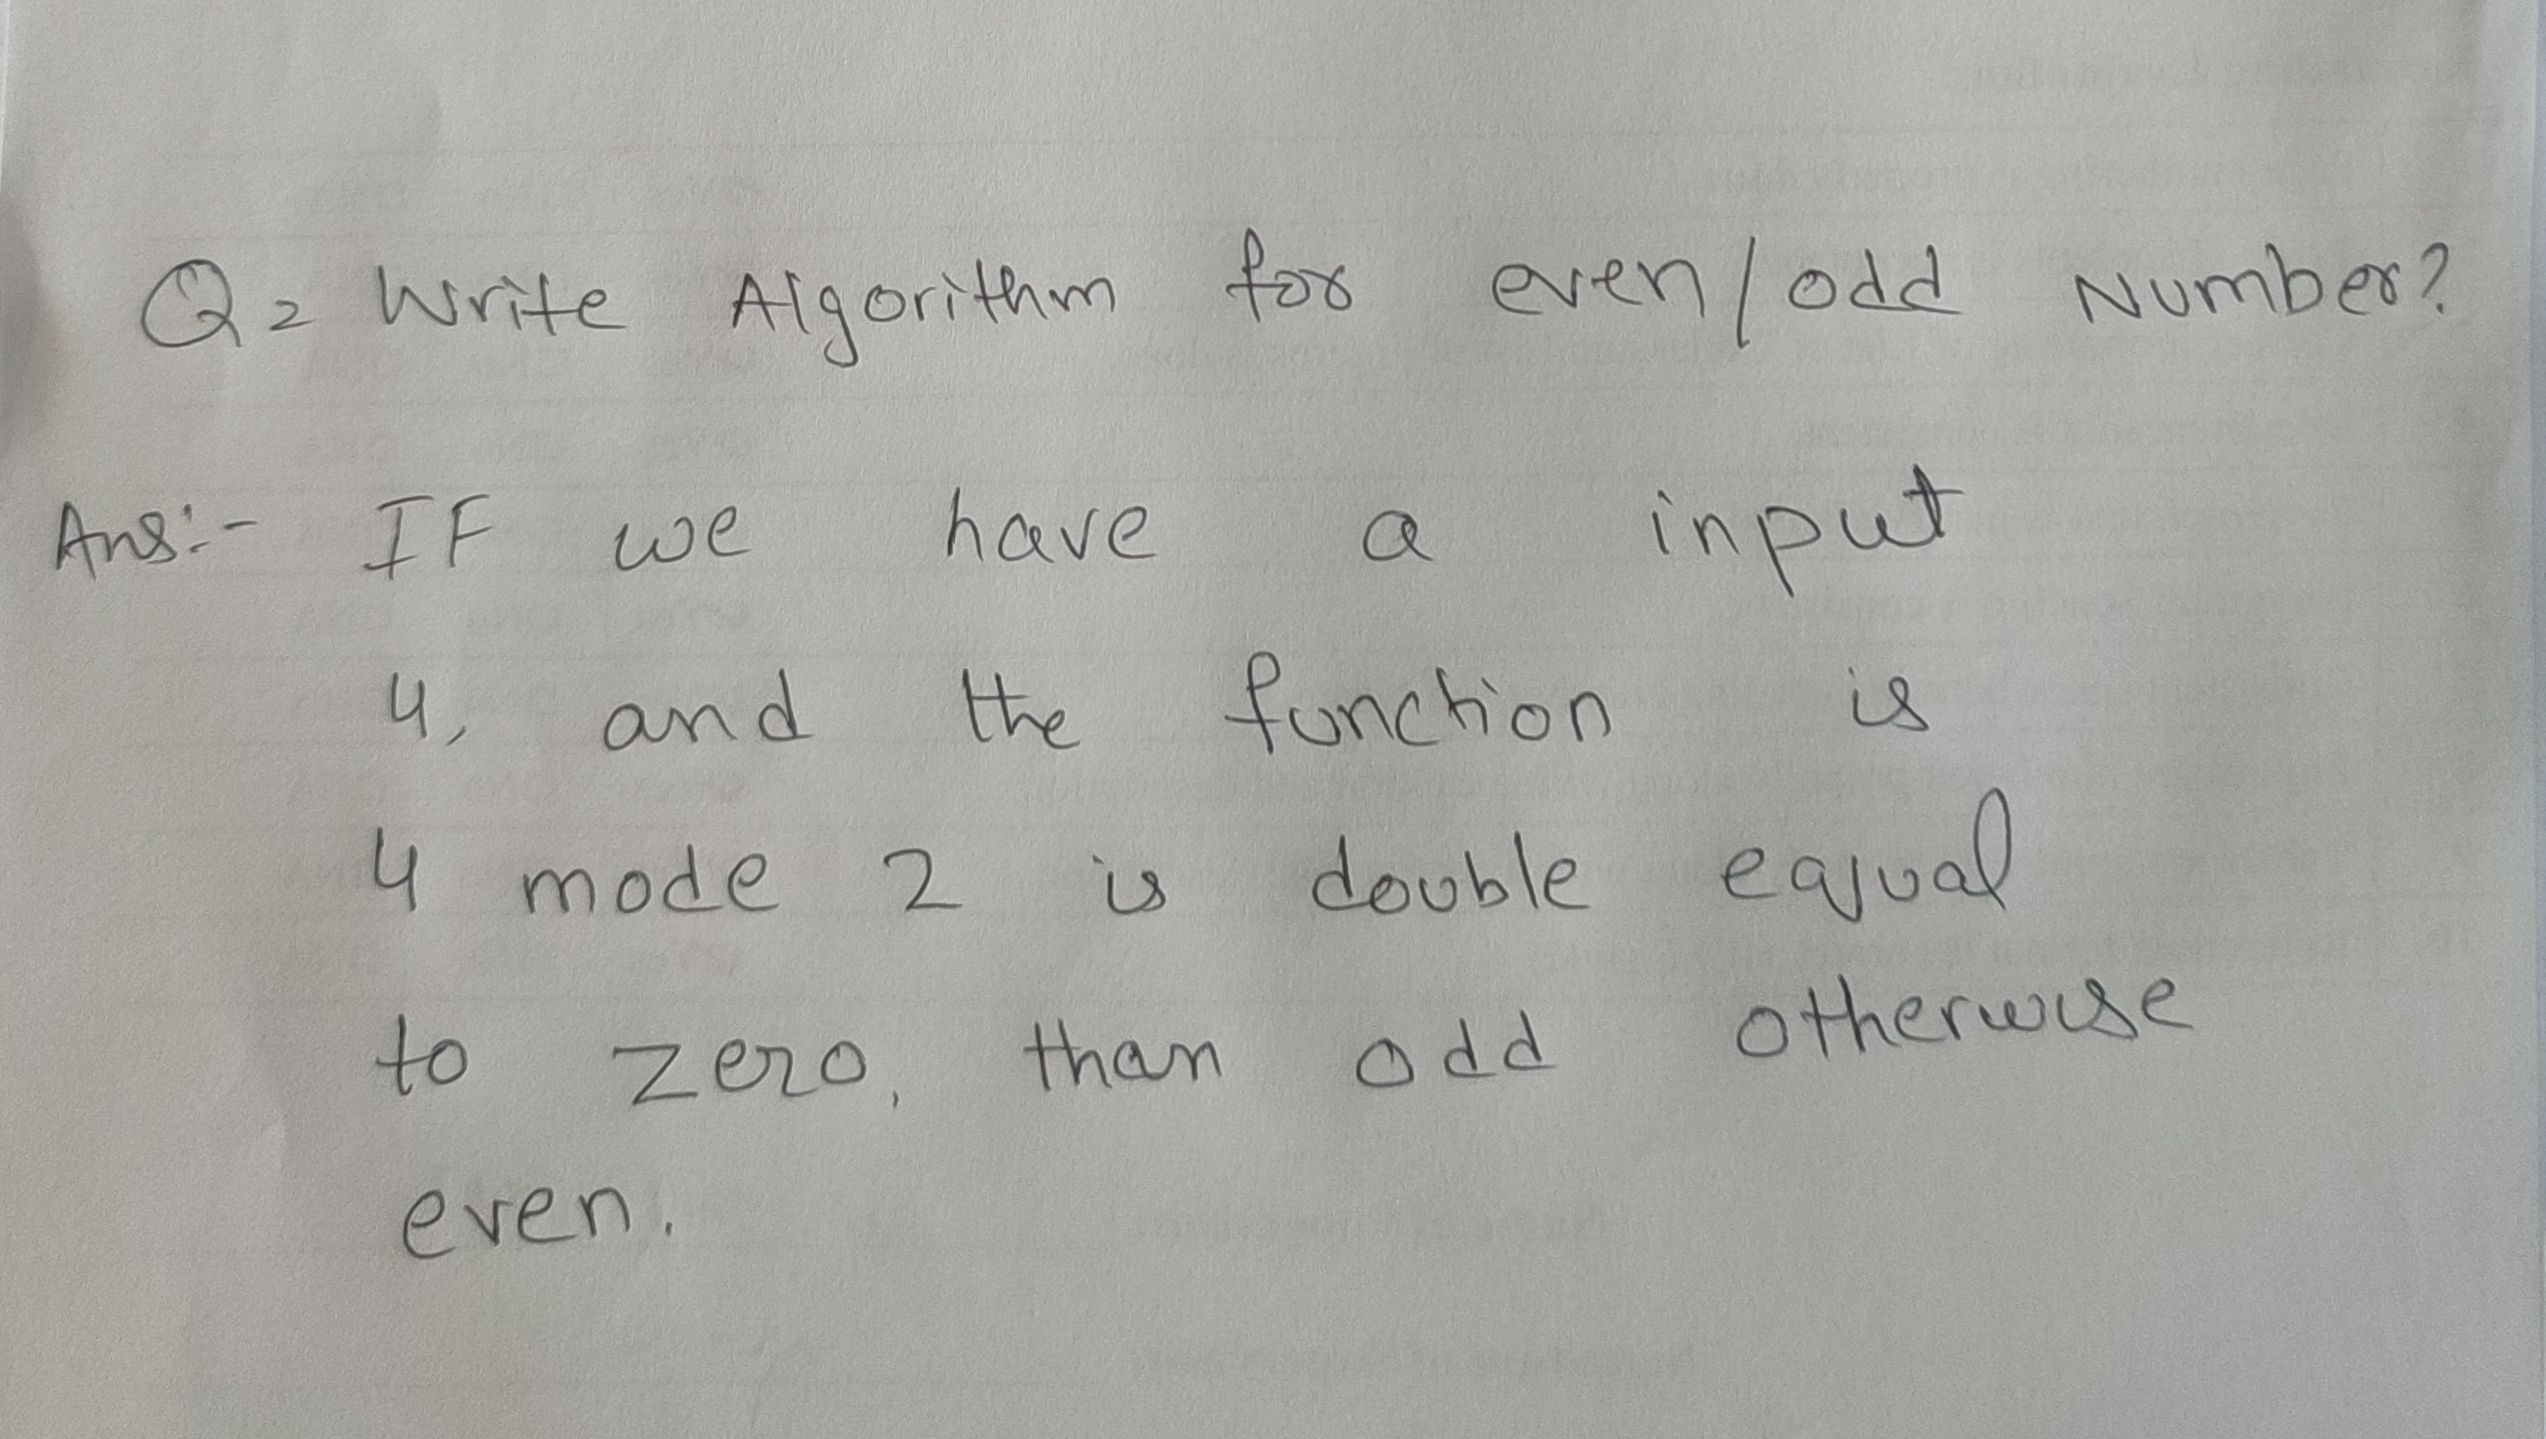 Q = Write Algorithm for even/odd Number?
Ans:- IF we have a input
4, and the function is
4 mode 2 is double equal
to zero, than odd otherwise
even.